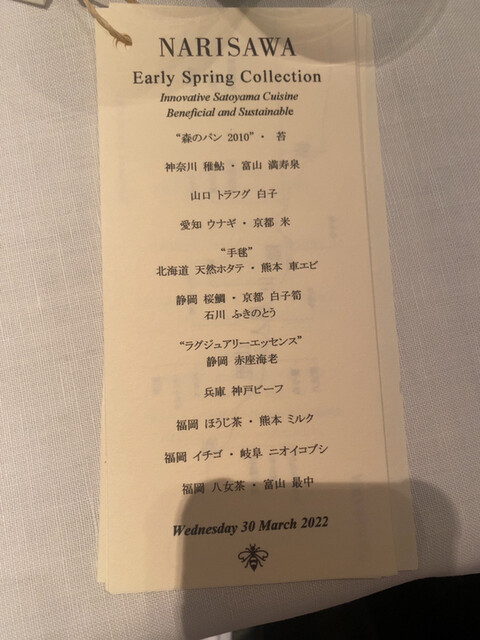 NARISAWA
Early Spring Collection
Innovative Satoyama Cuisine
Beneficial and Sustainable
“森のパン 2010”・ 苔
神奈川 稚鮎・富山 満寿泉
山口 トラフグ 白子
愛知 ウナギ・京都 米
“手毬”
北海道 天然ホタテ・熊本 車エビ
静岡 桜鯛・京都 白子筍
石川 ふきのとう
“ラグジュアリーエッセンス”
静岡 赤座海老
兵庫 神戸ビーフ
福岡 ほうじ茶・熊本 ミルク
福岡 イチゴ・岐阜 ニオイコブシ
福岡 八女茶・富山 最中
Wednesday 30 March 2022